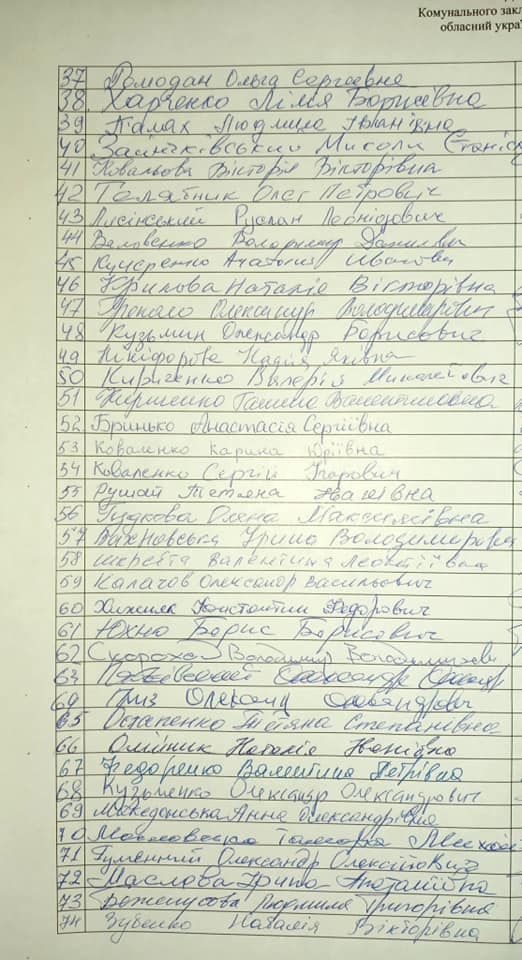 Комунального закл
обласний укра
37 Ромодан Ольга Сергеевна
38. Харченко Лілія Борисівна
39 Палах Людмила Іванівна
40 Зайнчківський Микола Станісл
41 Ковальова Вікторія Вікторівна
42 Олег Петрович
43 Лисінський Руслан Леонідович
44 Володимир Данилович
45 Кучеренко Анатолий Иванович
46 Крилова Наталія Вікторівна
47 Олександр Володимирович
48 Кузьмин Олександр Борисович
49 Нікіфорова Надія Яківна
50 Кириченко Валерій Миколайович
51 Кириченко Галина Валентинівна
52 Бринько Анастасія Сергіївна
53 Коваленко Карина Юріївна
54 Коваленко Сергій Ігорович
55 Рушай Тетяна Іванівна
56 Гудкова Олена Максимівна
57 Вахновська Ірина Володимирівна
58 Валентина Леонтіївна
59 Калачов Олександр Васильович
60 Константин Федорович
61 Юхно Борис Борисович
62 Скороход Володимир Володимирович
63 Олександр
64 Гриз
65 Остапенко Тетяна Степанівна
66 Олійник Наталія Іванівна
67 Федоренко Валентина Петрівна
68 Кузьменко Олександр Олександрович
69 Македонська Анна Олександрівна
70
71 Гуменний Олександр Олексійович
72 Маслова Ірина Анатоліївна
73 Людмила Григорівна
74 Зубенко Наталія Вікторівна